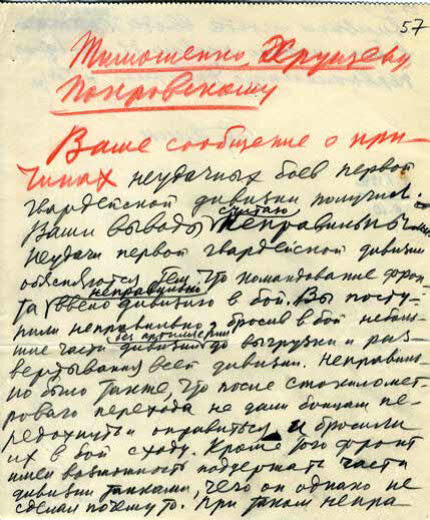 57
Тимошенко, Хрущеву
Покровскому
Ваше сообщение о при-
чинах неудачных боев первой
гвардейской дивизии получил.
Ваши выводы считаю неправильными
Неудачи первой гвардейской дивизии
объясняются тем, что командование фрон-
та неправильно ввело дивизию в бой. Вы посту-
пили неправильно, бросив в бой неболь-
шие части дивизии без артиллерии до выгрузки и раз-
вертывания всей дивизии. Неправиль-
но было также, что после стокиломет-
рового перехода не дали бойцам пе-
редохнуть и оправиться и бросили
их в бой сходу. Кроме того фронт
имел возможность поддержать части
дивизии танками, чего он однако не
сделал почему то. При таком непра-